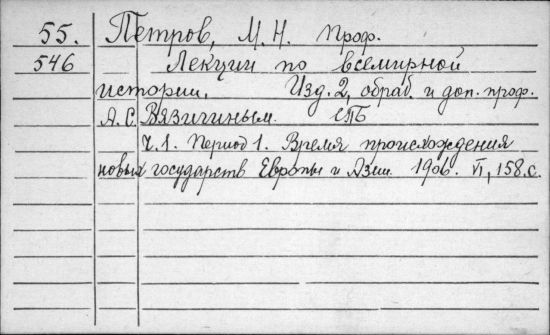 55. Петров, М. Н. Проф.
546 Лекции по всемирной
истории. Изд. 2, обраб. и доп. проф.
А. С. Вязигиным. СПБ
Ч. 1. Период 1. Время происхождения
новых государств Европы и Азии. 1906. VI, 158. с.